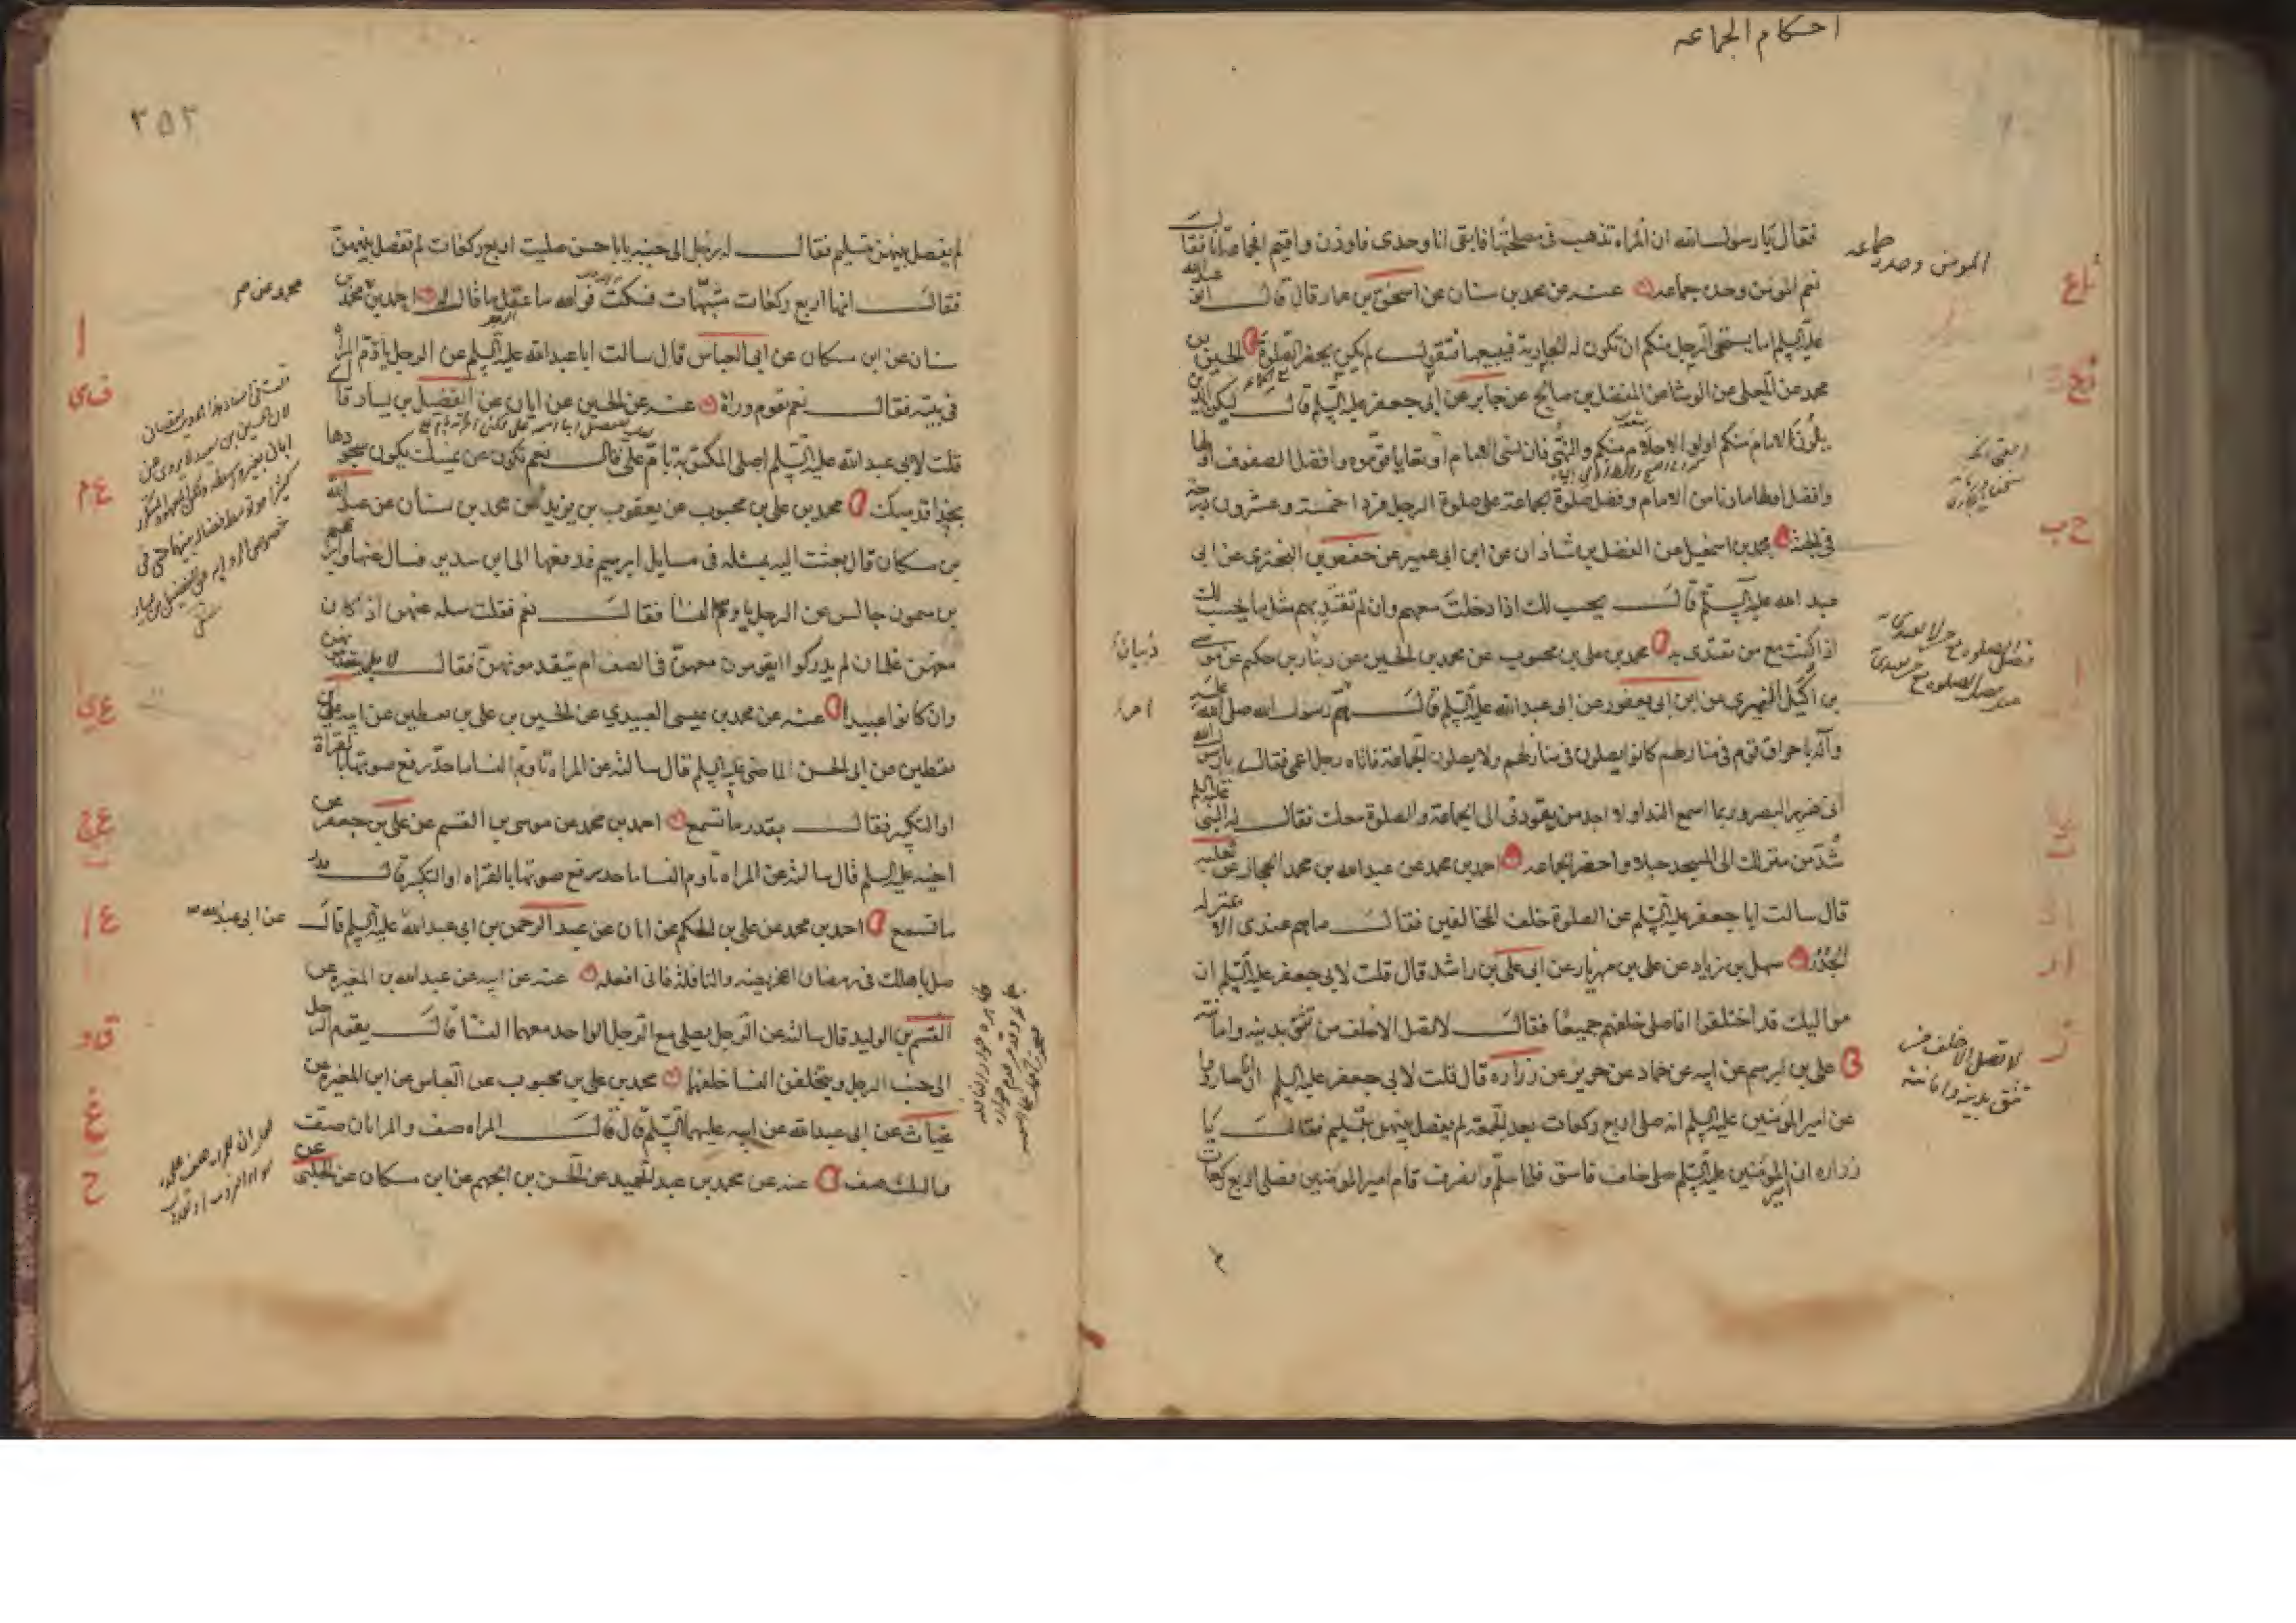 احكام الجماعه
فقال يا رسول الله ان المراه تذهب فى مصلحتها فابقى انا وحدى فاوذن واقيم افجماعة انا فقال
نعم المومن وحده جماعه عنه عن محمد بن سنان عن اسحق بن عمار قال قال ابو عبدالله
عليه السلم اما يستحى الرجل منكم ان تكون له الجارية فيبيعها فتقول لم يكن يحضر الصلوة الحسين بن
محمد عن المعلى عن الوشا عن المفضل بن صالح عن جابر عن ابى جعفر عليه السلم قال ليكن الذين
يلون الامام منكم اولو الاحلام منكم والنهى فان نسى الامام او تعايا قوموه وافضل الصفوف اولها
وافضل اولها ما دنا من الامام وفضل صلوة الجماعة على صلوة الرجل فردا خمسة وعشرون درجة
فى الجنة محمد بن اسمعيل عن الفضل بن شاذان عن ابن ابى عمير عن حفص بن البخترى عن ابى
عبد الله عليه السلم قال يحسب لك اذا دخلت معهم وان لم تقتد بهم مثل ما يحسب لك
اذا كنت مع من تقتدى به محمد بن على بن محبوب عن محمد بن الحسين عن دينار بن حكيم عن موسى
بن اكيل النميرى عن ابن ابى يعفور عن ابى عبد الله عليه السلم قال هم رسول الله صلى الله عليه
وآله باحراق قوم فى منازلهم كانوا يصلون فى منازلهم ولا يصلون الجماعة فاتاه رجل اعمى فقال يا رسول الله
انى ضرير البصر وربما اسمع النداء ولا اجد من يقودنى الى الجماعة والصلوة معك فقال له النبى عليه السلم
شد من منزلك الى المسجد حبلا واحضر الجماعه احمد بن محمد عن عبد الله بن محمد الحجال عن ثعلبه
قال سالت ابا جعفر عليه السلم عن الصلوة خلف المخالفين فقال ما هم عندى الا بمنزله
الجدر سهل بن زياد عن على بن مهزيار عن ابى على بن راشد قال قلت لابى جعفر عليه السلم ان
مواليك قد اختلفوا افاصلى خلفهم جميعا فقال لا تصل الا خلف من تثق بدينه وامانته
على بن ابرهيم عن ابيه عن حماد عن حريز عن زراره قال قلت لابى جعفر عليه السلم ان اناسا رووا
عن امير المومنين عليه السلم انه صلى اربع ركعات بعد الجمعة لم يفصل بينهن بتسليم فقال يا
زراره ان امير المومنين عليه السلم صلى خلف فاسق فلما سلم وانصرف قام امير المومنين فصلى اربع ركعات
المومن وحده جماعه
لا تصل الا خلف من
تثق بدينه وامانته
٣٥٣
لم يفصل بينهن بتسليم فقال له رجل الى جنبه يا ابا حسن صليت اربع ركعات لم تفصل بينهن
فقال انها اربع ركعات مشبهات فسكت فو الله ما عقل ما قال له احمد بن محمد عن
سنان عن ابن مسكان عن ابى العباس قال سالت ابا عبد الله عليه السلم عن الرجل يؤم المراه
فى بيته فقال نعم تقوم وراه عنه عن الحسين عن ابان عن الفضيل بن يسار قال
قلت لابى عبد الله عليه السلم اصلى المكتوبة بام على قال نعم تكون عن يمينك يكون سجودها
بحذا قدميك محمد بن على بن محبوب عن يعقوب بن يزيد عن محمد بن سنان عن عبد الله
بن مسكان قال بعثت اليه بمسئلة فى مسايل ابرهيم فدفعها الى ابن سدير فسال عنها وابرهيم
بن ميمون جالس عن الرجل يؤم النسا فقال نعم فقلت سله عنهن اذا كان
معهن غلمان لم يدركوا ايقومون معهن فى الصف ام يتقدمونهن فقال لا بل يتقدمونهن
وان كانوا عبيدا عنه عن محمد بن عيسى العبيدى عن الحسين بن على بن يقطين عن ابيه على بن
يقطين عن ابى الحسن الماضى عليه السلم قال سالته عن المراه تؤم النسا ما حد رفع صوتها بالقراة
او التكبير فقال بقدر ما تسمع احمد بن محمد عن موسى بن القسم عن على بن جعفر عن
اخيه عليه السلم قال سالته عن المراه تؤم النسا ما حد رفع صوتها بالقراه او التكبير قال قدر
ما تسمع احمد بن محمد عن على بن الحكم عن ابان عن عبد الرحمن بن ابى عبد الله عليه السلم قال
صل باهلك فى رمضان الفريضه والنافلة فانى افعله عنه عن ابيه عن عبد الله بن المغيره عن
القسم بن الوليد قال سالته عن الرجل يصلى مع الرجل الواحد معهما النسا قال يقوم الرجل
الى جنب الرجل ويتخلفن النسا خلفهما محمد بن على بن محبوب عن العباس عن ابن المغيره عن
غياث عن ابى عبد الله عن ابيه عليهما السلم قال قال المراه صف والمراتان صف
والثلث صف عنه عن محمد بن عبد الحميد عن الحسن بن الجهم عن ابن مسكان عن الحلبى عن
عن ابى عبد الله